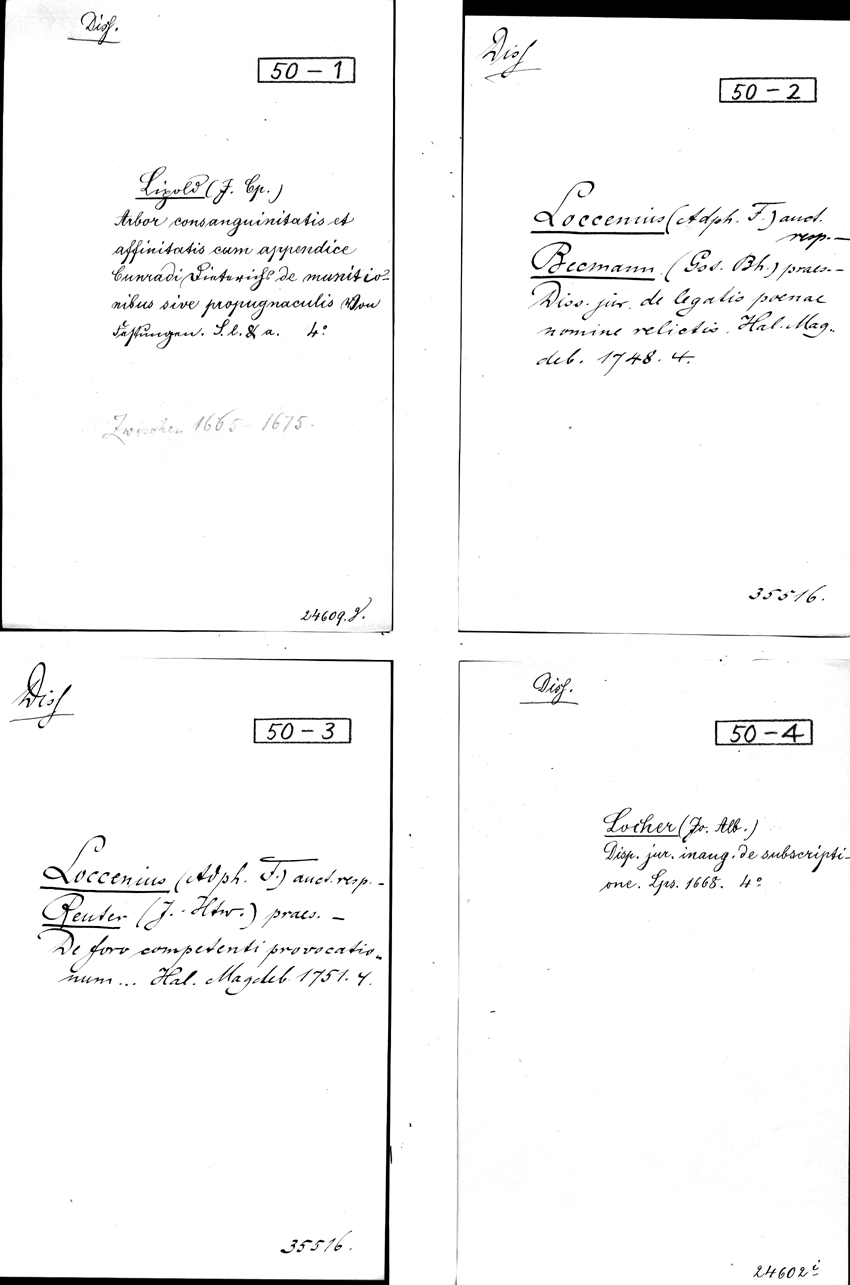 Diss.
50-1
Lipold (J. Cp.)
Arbor consanguinitatis et
affinitatis cum appendice
Cunradi Dieterichs de munitio-
nibus sive propugnaculis Von
Festungen. S. l. & a. 4°
Zwischen 1665-1675.
24609.
Diss
50-2
Loccenius (Adph. F.) auct.
resp.-
Becmann (Gos. Bh.) praes.-
Diss. jur. de legatis poenae
nomine relictis. Hal. Mag-
deb. 1748. 4.
35516.
Diss
50-3
Loccenius (Adph. F.) auct. resp.-
Reuter (J. Htw.) praes. -
De foro competenti provocatio-
num... Hal. Magdeb. 1751. 4.
35516.
Diss.
50-4
Locher (Jo. Alb.)
Disp. jur. inaug. de subscripti-
one. Lps. 1668. 4°
24602 i